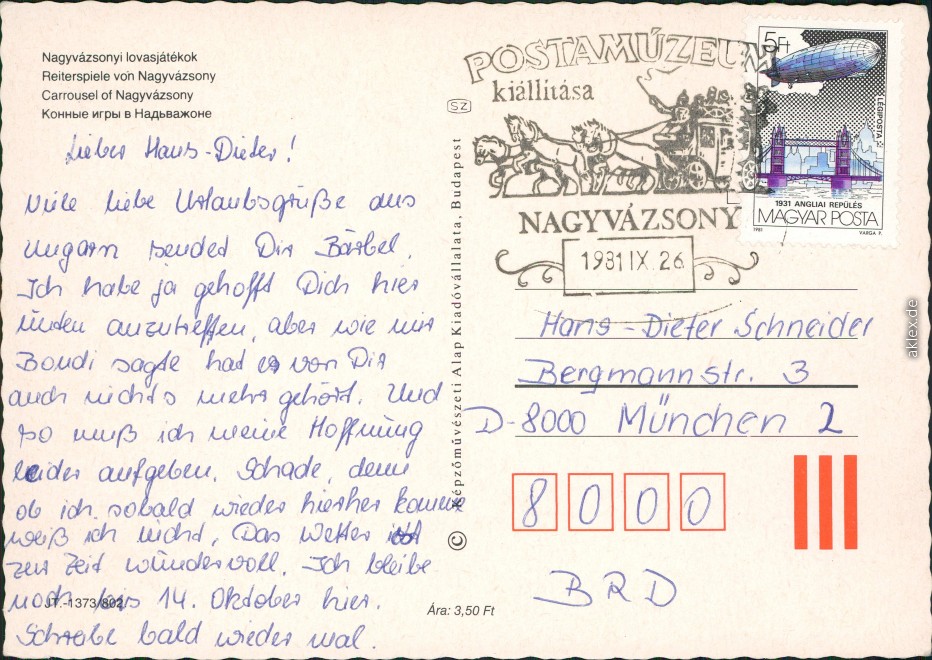 Nagyvázsonyi lovasjátékok
Reiterspiele von Nagyvázsony
Carrousel of Nagyvázsony
Конные игры в Надьважоне
Lieber Hans-Dieter!
Viele liebe Urlaubsgrüße aus
Ungarn sendet Dir Bärbel.
Ich habe ja gehofft Dich hier
unten anzutreffen, aber wie mir
Bondi sagte hat er von Dir
auch nichts mehr gehört. Und
so muß ich meine Hoffnung
leider aufgeben. Schade, denn
ob ich sobald wieder hierher komme
weiß ich nicht. Das Wetter ist
zur Zeit wundervoll. Ich bleibe
noch bis 14. Oktober hier.
Schreibe bald wieder mal.
JT.-1373/802
Ára: 3,50 Ft
SZ
© Képzőművészeti Alap Kiadóvállalata, Budapest
POSTAMÚZEUM
kiállítása
NAGYVÁZSONY
1981 IX. 26
5Ft
LÉGIPOSTA
1931 ANGLIAI REPÜLÉS
MAGYAR POSTA
1981
VARGA P.
Hans-Dieter Schneider
Bergmannstr. 3
D-8000 München 2
8 0 0 0
BRD
aklex.de